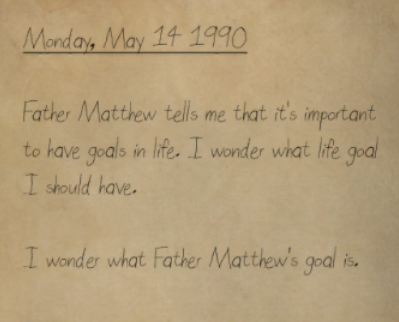 Monday, May 14 1990
Father Matthew tells me that it's important
to have goals in life. I wonder what life goal
I should have.
I wonder what Father Matthew's goal is.